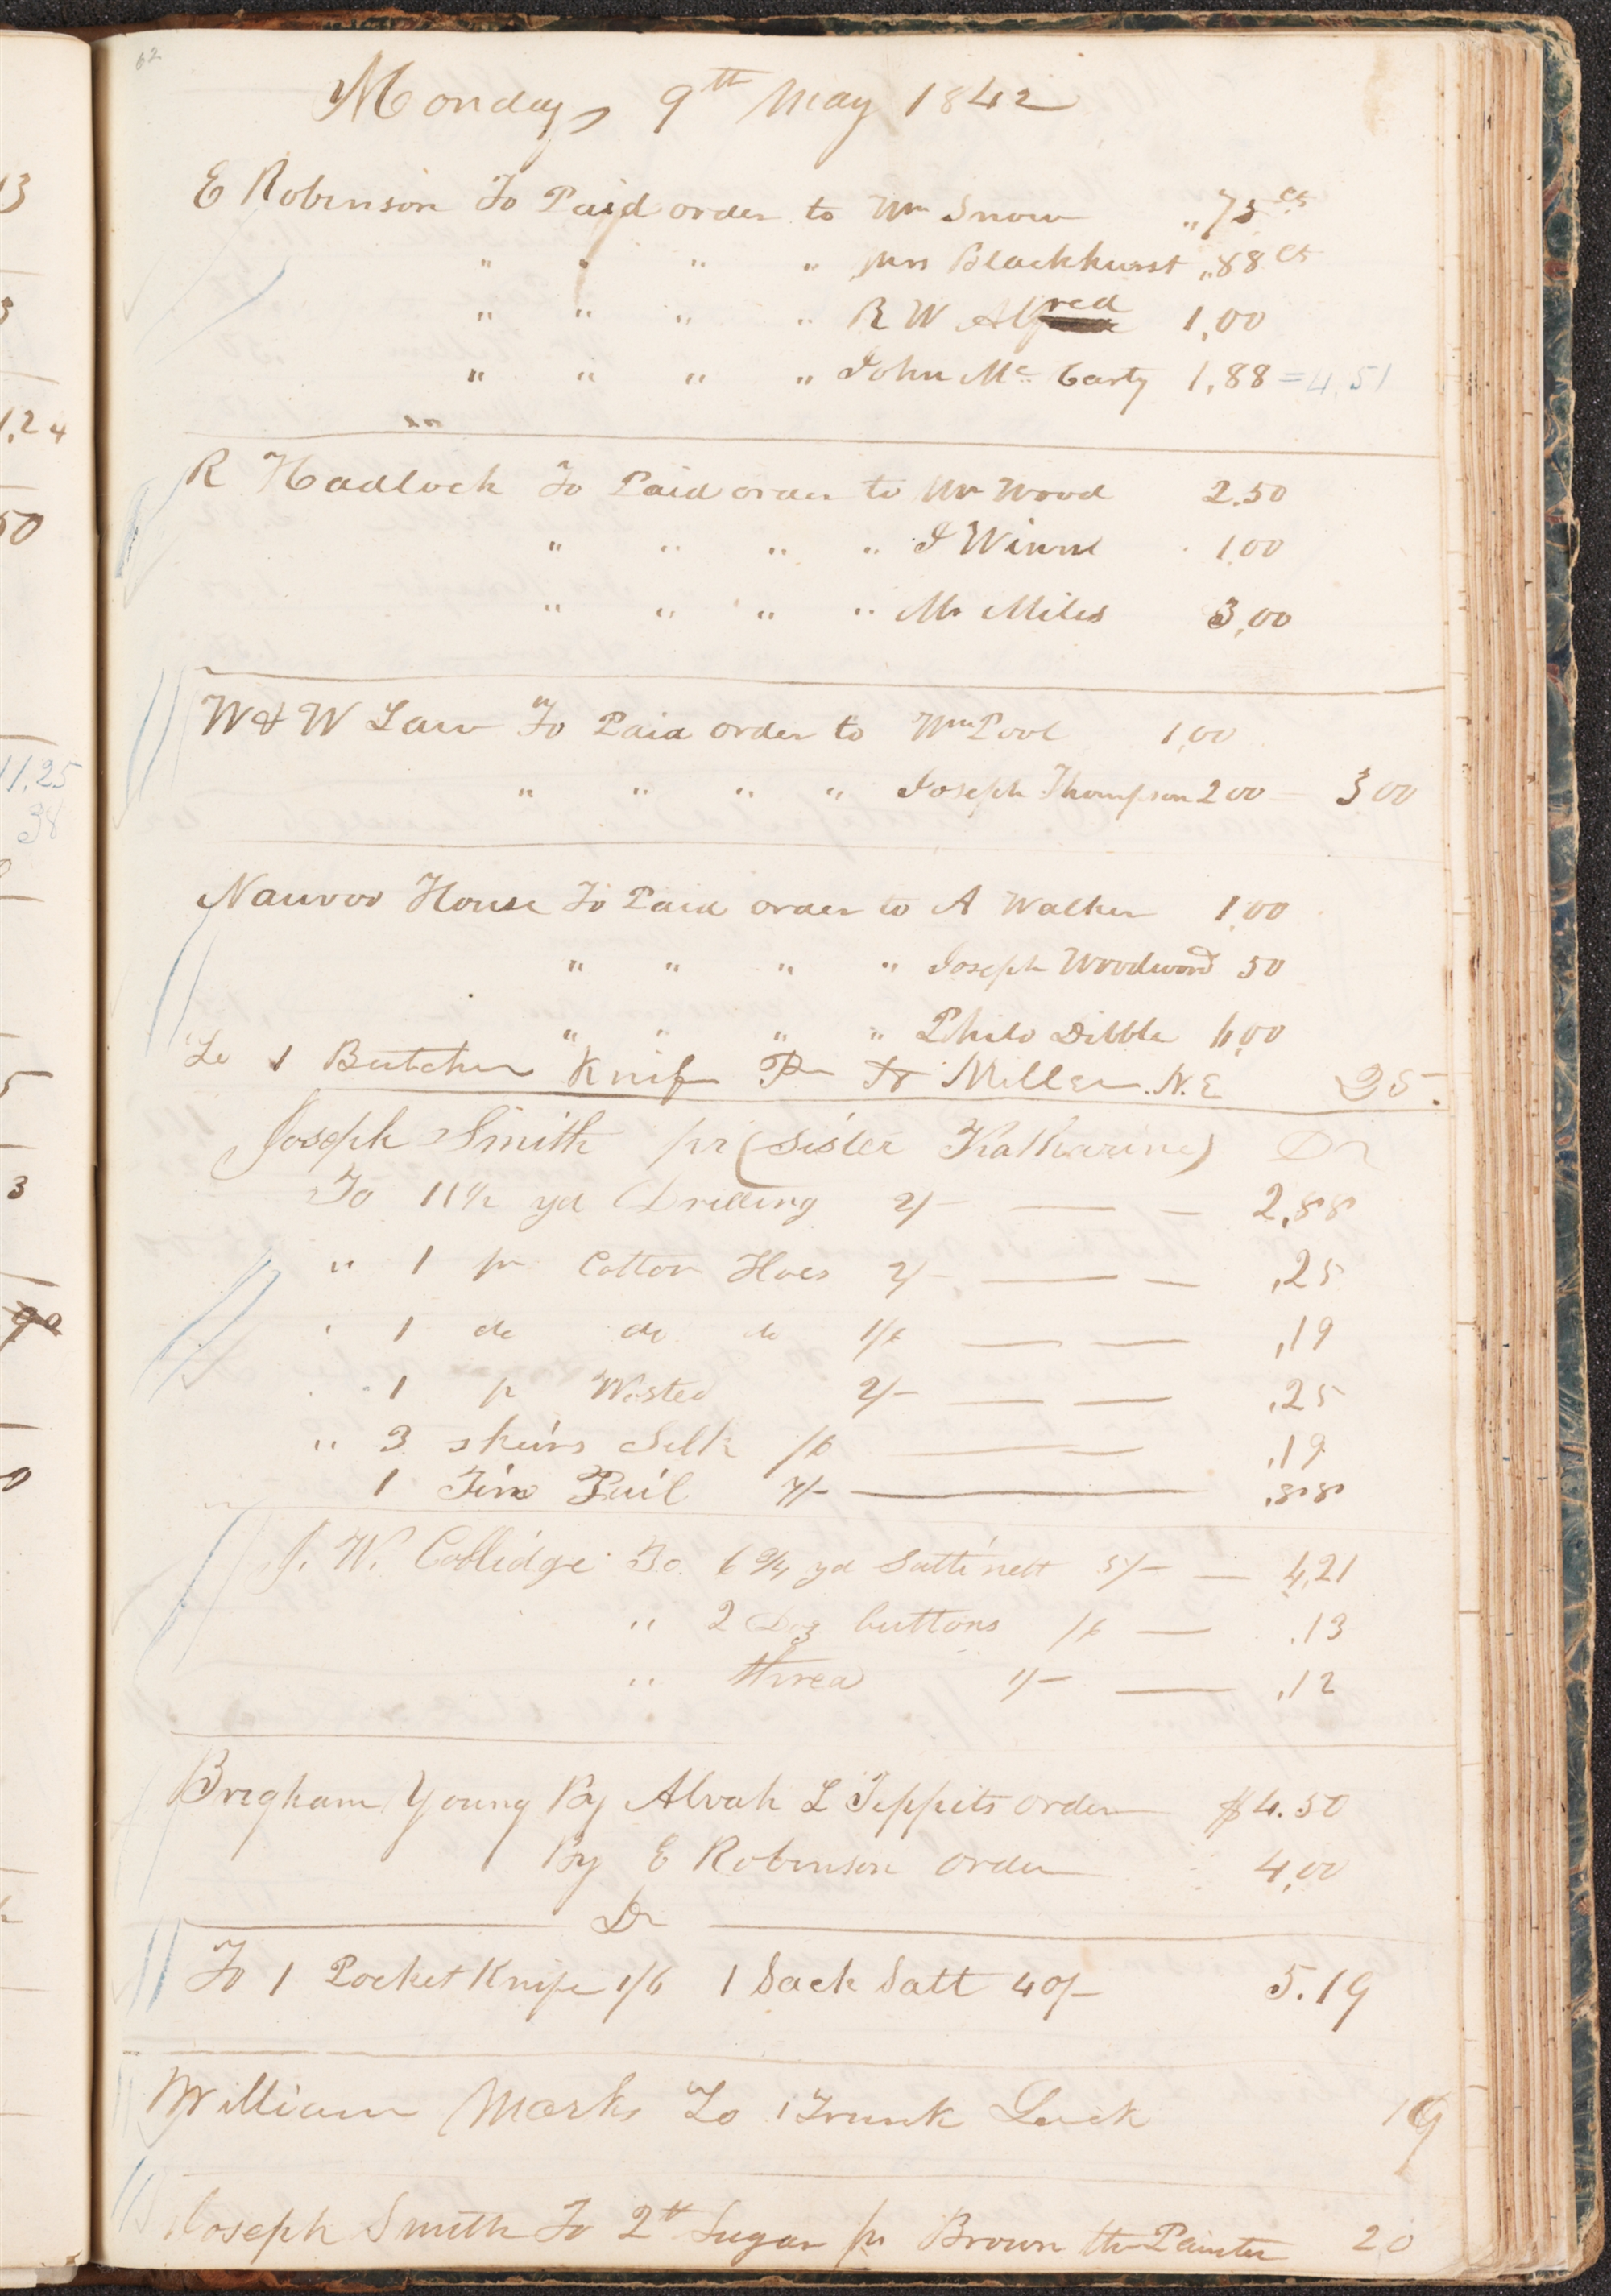 62
Monday, 9th May 1842
E Robinson To Paid order to Wm Snow ,,75 cts
" " " " Mrs Blackhurst ,,88 cts
" " " " R W Alfred 1,00
" " " " John Mc Carty 1,88 = 4,51
R Hadlock To Paid order to Mr Wood 2.50
" " " " I Winne 1,00
" " " " Mr Miles 3,00
W & W Law To Paid order to Wm Pool 1,00
" " " " Joseph Thompson 2 00 — 3 00
Nauvoo House To Paid order to A Walker 1,00
" " " " Joseph Woodward 50
" " " " Philo Dibble 6,00
To 1 Butcher Knif Pr Miller. N. E 25.
Joseph Smith pr (Sister Katharine) Dr
To 11 1/2 yd Drilling 2/- — — 2,88
" 1 pr Cotton Hoes 2/- — — ,25
" 1 do do do 1/6 — — ,19
" 1 pr Wosted 2/- — — ,25
" 3 skeins Silk /6 — — ,19
1 Tin Pail 7/- — ,88
J. W. Collidge To 6 3/4 yd Sattinett 5/- — 4,21
" 2 Doz buttons /6 — .13
" thread 1/- — ,12
Brigham Young By Alvah L Tippits order $4.50
By E Robinson order 4,00
Dr
To 1 Pocket Knife 1/6 1 Sack Salt 40/- 5.19
William Marks To 1 Trunk Lock 19
Joseph Smith To 2 tt Sugar pr Brown the Painter 20
13
1,24
50
11,25
38
5
3